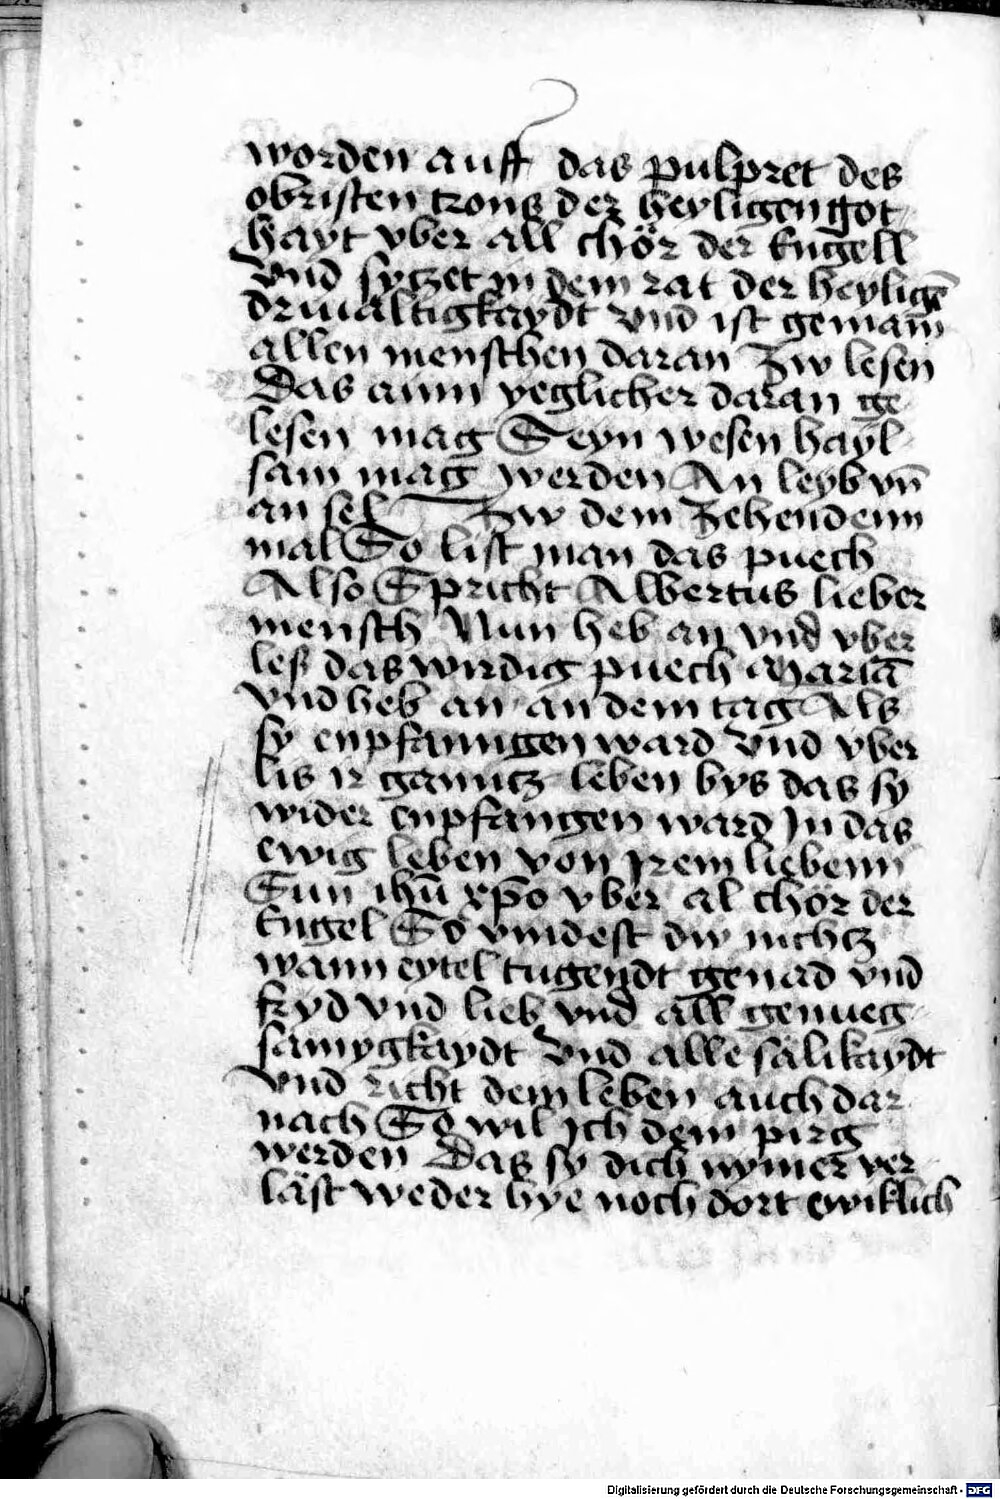 worden auff das pulpret des
obristen trons der heyligen got
hayt vber all chör der Engell
vnd sytzet in dem rat der heyligē
driualtigkaydt vnd ist gemain
allen menschen daran zw lesen
Das ainn yeglicher daran ge
lesen mag Seyn wesen hayl
sam mag werden An leyb vn̄
an sel Zw dem zehendenn
mal So list man das puech
Also Spricht Albertus lieber
mensch Nun heb an vnd vber
les das wirdig puech Maria
vnd heb an an dem tag Als
sy enpfanngen ward vnd vber
lis ir ganntz leben bys das sy
wider enpfangen ward In das
ewig leben von Irem liebenn
Sun ihū xp̄o vber al chör der
Engel So vindest dw nichtz
wann eytel tugendt genad vnd
fryd vnd lieb vnd all genueg
samygkaydt vnd alle sälikaydt
vnd richt dem leben auch dar
nach So wil ich dem pirg
werden Das sy dich nymer ver
läst weder hye noch dort ewiklich
Digitalisierung gefördert durch die Deutsche Forschungsgemeinschaft - DFG